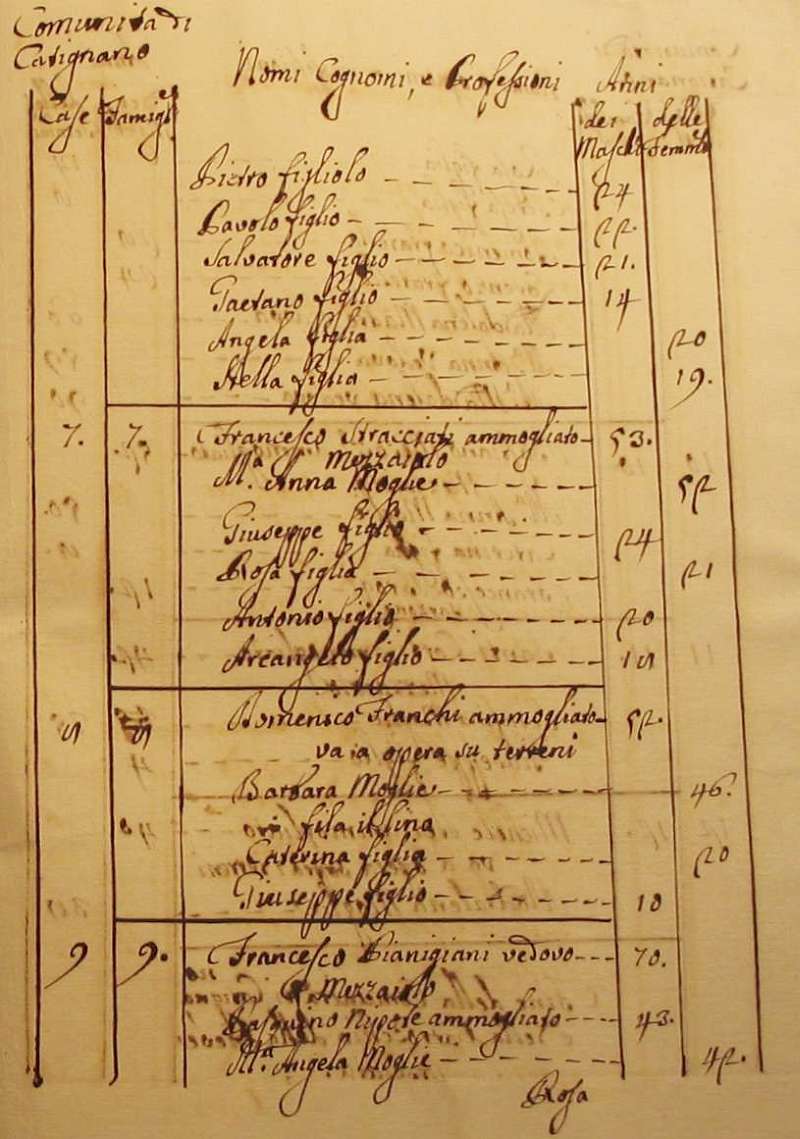 Comunità di
Catignano
Nomi Cognomi, e Professioni Anni
Case Famigl. dei Maschi delle Femmine
Pietro figliolo 24
Pavolo figlio 22.
Salvatore figlio 21.
Gaetano figlio 14
Angela figlia 20
Stella figlia 19.
7. 7. Francesco Stracciati ammogliato 53.
Mezzaiolo
M.a Anna Moglie 52
Giuseppe figlio 24
Rosa figlia 21
Antonio figlio 20
Arcangelo figlio 18
8 8 Domenico Franchi ammogliato 52.
va a opera su terreni
Barbara Moglie 46.
fila il lina
Caterina figlia 20
Giuseppe figlio 10
9 9. Francesco Pianigiani vedovo 70.
Mezzaiolo
Nypote ammogliato 43.
M.a Angela Moglie 42.
Rosa